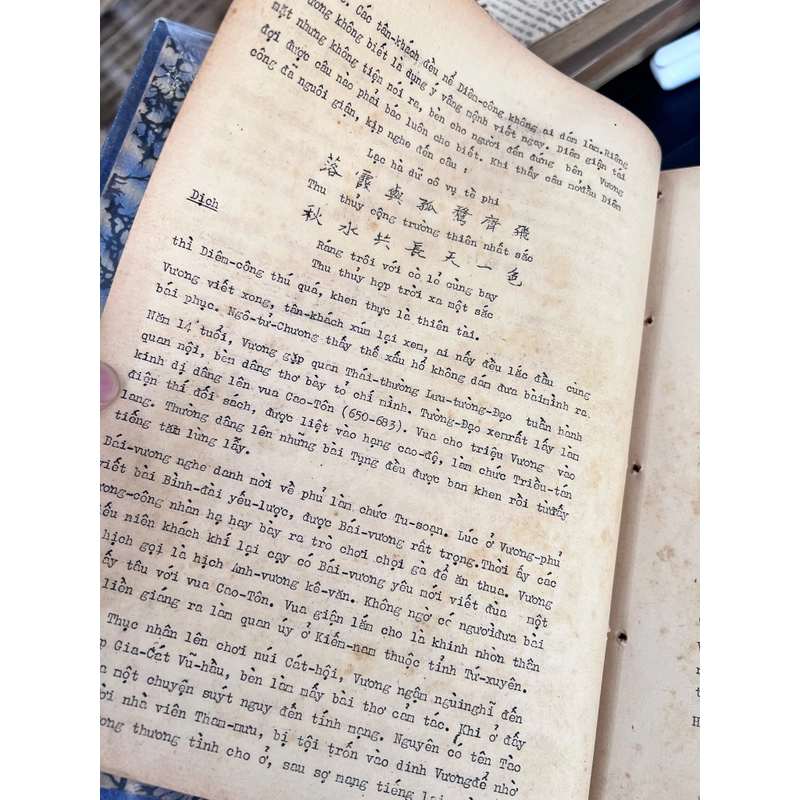 Các tân-khách đều nể Diêm-công không ai dám làm. Riêng
ương không biết là dụng ý vâng mệnh viết ngay. Diêm giận tái
mặt nhưng không tiện nói ra, bèn cho người đến đứng bên Vương
đợi được câu nào phải báo luôn cho biết. Khi thấy câu mởđầu Diêm
công đã nguôi giận, kịp nghe đến câu :
Lạc hà dữ cô vụ tề phi
落 霞 與 孤 鶩 齊 飛
Thu thủy cộng trường thiên nhất sắc
秋 水 共 長 天 一 色
Dịch
Ráng trôi với cò lẻ cùng bay
Thu thủy hợp trời xa một sắc
thì Diêm-công thú quá, khen thực là thiên tài.
Vương viết xong, tân-khách xúm lại xem, ai nấy đều lắc đầu cùng
bái phục. Ngô-tử-Chương thấy thế xấu hổ không dán đưa bàimình ra.
Năm 14 tuổi, Vương gặp quan Thái-thường Lưu-tường-Đạo tuần hành
quan nội, bèn dâng thơ bày tỏ chí mình. Tường-Đạo xemrất lấy làm
kinh dị dâng lên vua Cao-Tôn (650-683). Vua cho triệu Vương vào
điện thí đối sách, được liệt vào hạng cao-độ, làm chức Triều-tán
lang. Thường dâng lên những bài Tụng đều được ban khen rồi từđấy
tiếng tăm lừng lẫy.
Bái-vương nghe danh mời về phủ làm chức Tu-soạn. Lúc ở Vương-phủ
viết bài Bình-đài yếu-lược, được Bái-vương rất trọng.Thời ấy các
ương-công nhàn hạ hay bày ra trò chơi chọi gà để ăn thua. Vương
iếu niên khách khí lại cạy có Bái-vương yêu mới viết đùa một
hịch gọi là hịch Anh-vương kê-văn. Không ngờ có ngườiđưa bài
ấy tâu với vua Cao-Tôn. Vua giận lắm cho là khinh nhờn thân
liền giáng ra làm quan úy ở Kiếm-nam thuộc tỉnh Tứ-xuyên.
Thục nhân lên chơi núi Cát-hội, Vương ngậm ngùinghĩ đến
p Gia-Cát Vũ-hầu, bèn làm mấy bài thơ cảm tác. Khi ở đấy
a một chuyện suýt nguy đến tính mạng. Nguyên có tên Tào
ời nhà viên Tham-mưu, bị tội trốn vào dinh Vươngđể nhờ
ơng thương tình cho ở, sau sợ mang tiếng lại